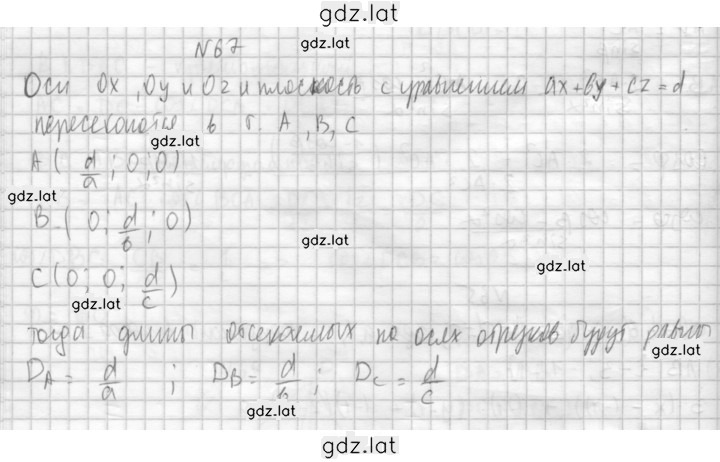 gdz.lat
N67
gdz.lat
Оси Ox, Oy и Oz и плоскость с уравнением ax+by+cz=d
пересекаются в т. A, B, C
gdz.lat
A( d/a ; 0; 0)
gdz.lat
B ( 0; d/b ; 0)
gdz.lat
gdz.lat
C(0; 0; d/c)
gdz.lat
тогда длины отсекаемых на осях отрезков будут равны
gdz.lat
D_A = d/a ; D_B = d/b ; D_C = d/c
gdz.lat
gdz.lat